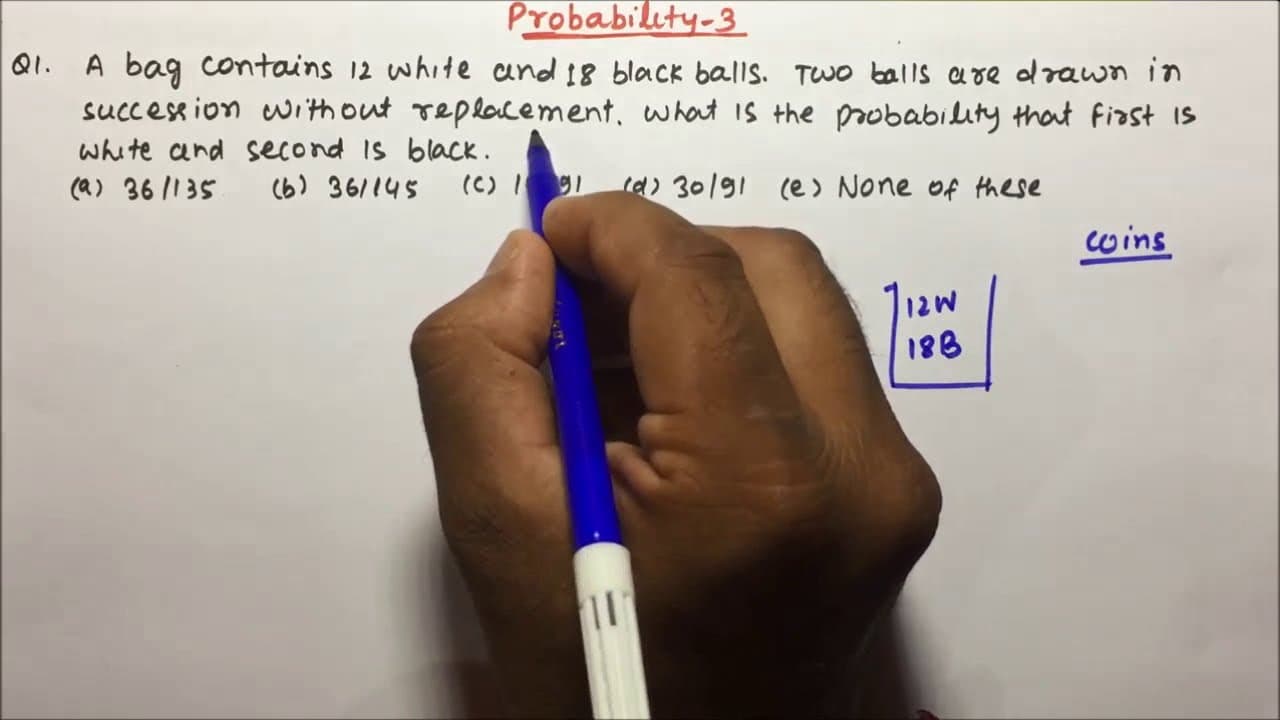 Probability-3
Q1. A bag contains 12 white and 18 black balls. Two balls are drawn in
succession without replacement. What is the probability that first is
white and second is black.
(a) 36/135 (b) 36/145 (c) 91 (d) 30/91 (e) None of these
coins
12W
18B